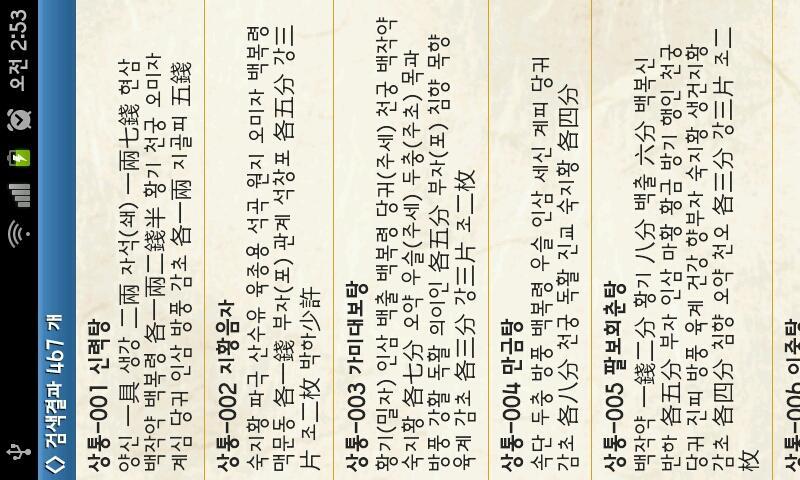 오전 2:53
◇ 검색결과 467 개
상통-001 신력탕
양신 一具 생강 二兩 자석(쇄) 一兩七錢 현삼
백작약 백복령 各一兩二錢半 황기 천궁 오미자
계심 당귀 인삼 방풍 감초 各一兩 지골피 五錢
상통-002 지황음자
숙지황 파극 산수유 육종용 석곡 원지 오미자 백복령
맥문동 各一錢 부자(포) 관계 석창포 各五分 강三
片 조二枚 박하少許
상통-003 가미대보탕
황기(밀자) 인삼 백출 백복령 당귀(주세) 천궁 백작약
숙지황 各七分 오약 우슬(주세) 두충(주초) 목과
방풍 강활 독활 의이인 各五分 부자(포) 침향 목향
육계 감초 各三分 강三片 조二枚
상통-004 만금탕
속단 두충 방풍 백복령 우슬 인삼 세신 계피 당귀
감초 各八分 천궁 독활 진교 숙지황 各四分
상통-005 팔보회춘탕
백작약 一錢二分 황기 八分 백출 六分 백복신
반하 各五分 부자 인삼 마황 황금 방기 행인 천궁
당귀 진피 방풍 육계 건강 향부자 숙지황 생건지황
감초 各四分 침향 오약 천오 各三分 강三片 조二
枚
상통-006 이중탕